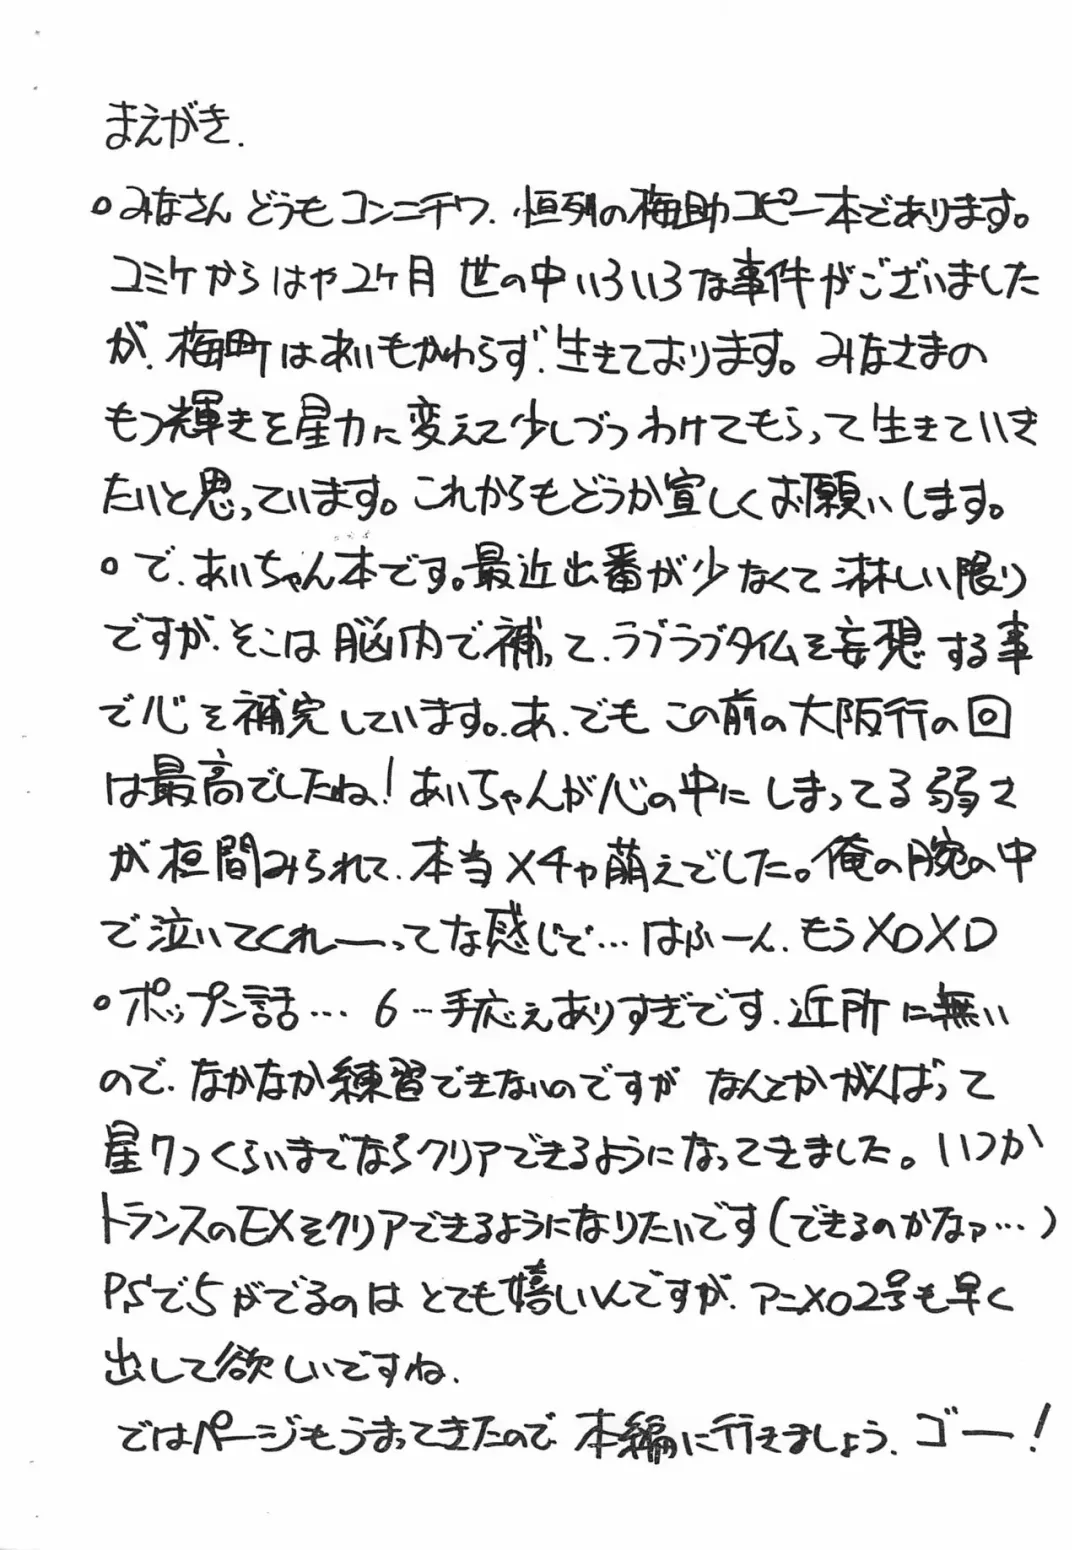 まえがき.
○みなさんどうもコンニチワ.恒列の梅助コピー本であります。
コミケからはや2ヶ月 世の中いろいろな事件がございました
が.梅町はあいもかわらず.生きております。みなさまの
もつ輝きを星力に変えて少しづつわけてもらって生きていき
たいと思っています。これからもどうか宜しくお願いします。
○で.あいちゃん本です。最近出番が少なくて淋しい限り
ですが.そこは脳内で補って.ラブラブタイムを妄想する事
で心を補完しています。.あ.でもこの前の大阪行の回
は最高でしたね!あいちゃんが心の中にしまってる弱さ
が垣間みられて.本当メチャ萌えでした。俺の腕の中
で泣いてくれーーってな感じで…はふーん.もうメロメロ
○ポップン話…6…手応えありすぎです.近所に無い
ので.なかなか練習できないのですが なんとかがんばって
星7つくらいまでならクリアできるようになってきました。いつか
トランスのEXをクリアできるようになりたいです(できるのかなァ…)
PSで5がでるのはとても嬉しいんですが.アニメロ2号も早く
出して欲しいですね.
ではページもうまってきたので 本編に行きましょう.ゴー!